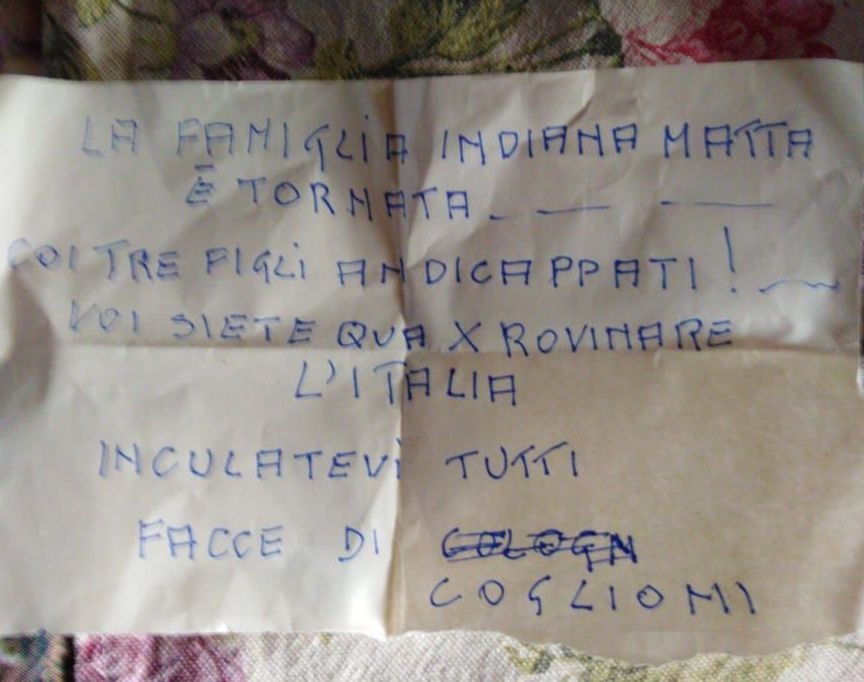 LA FAMIGLIA INDIANA MATTA
È TORNATA _ _ _
COI TRE FIGLI ANDICAPPATI!
VOI SIETE QUA X ROVINARE
L'ITALIA
INCULATEVI TUTTI
FACCE DI
COGLIONI